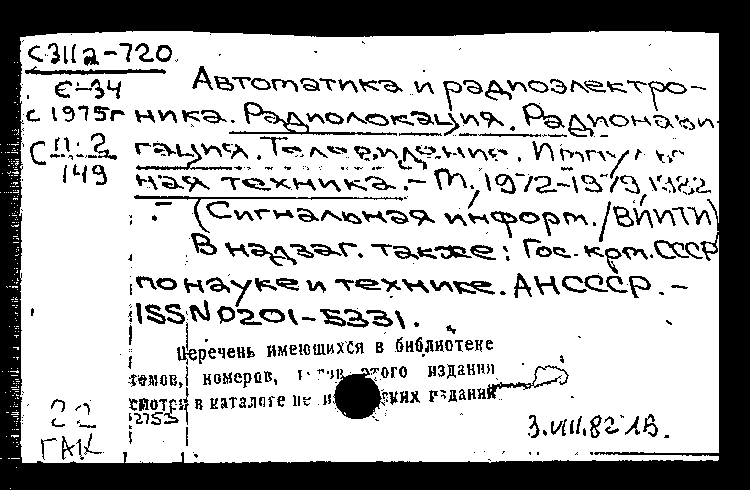 с 3112-720
Є-34 Автоматика и радиоэлектро-
с 1975г ника. Радиолокация. Радионави-
С п.2 гация. Телевидение. Импульс
149
ная техника. - М., 1972-1979, 1982
.- (Сигнальная информ. /ВИНИТИ)
В надзаг. также: Гос. ком. СССР
по науке и технике. АН СССР. -
ISSN 0201-5331.
Перечень имеющихся в библиотеке
томов, номеров, этого издания
смотри в каталоге изданий
2753
22
ГАК
3.VIII.82 ЛВ.